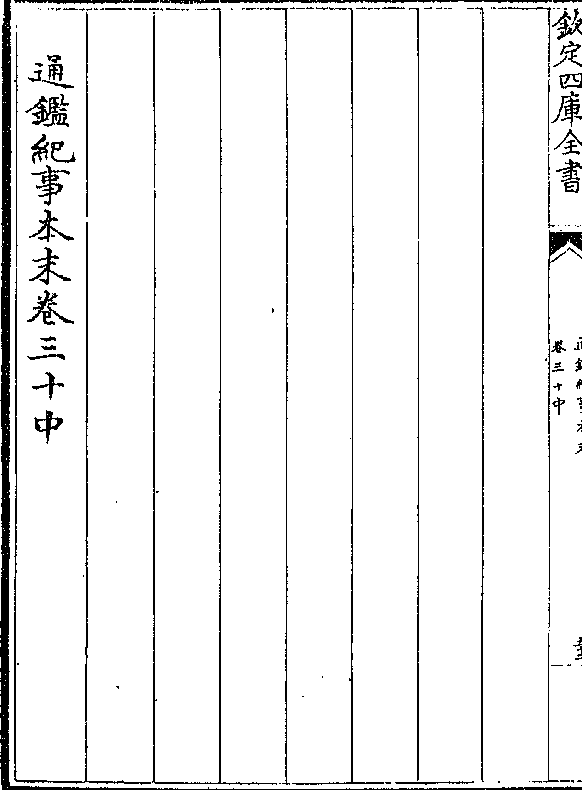 欽定四庫全書
通鑑紀事本末
卷三十中
通鑑紀事本末卷三十中